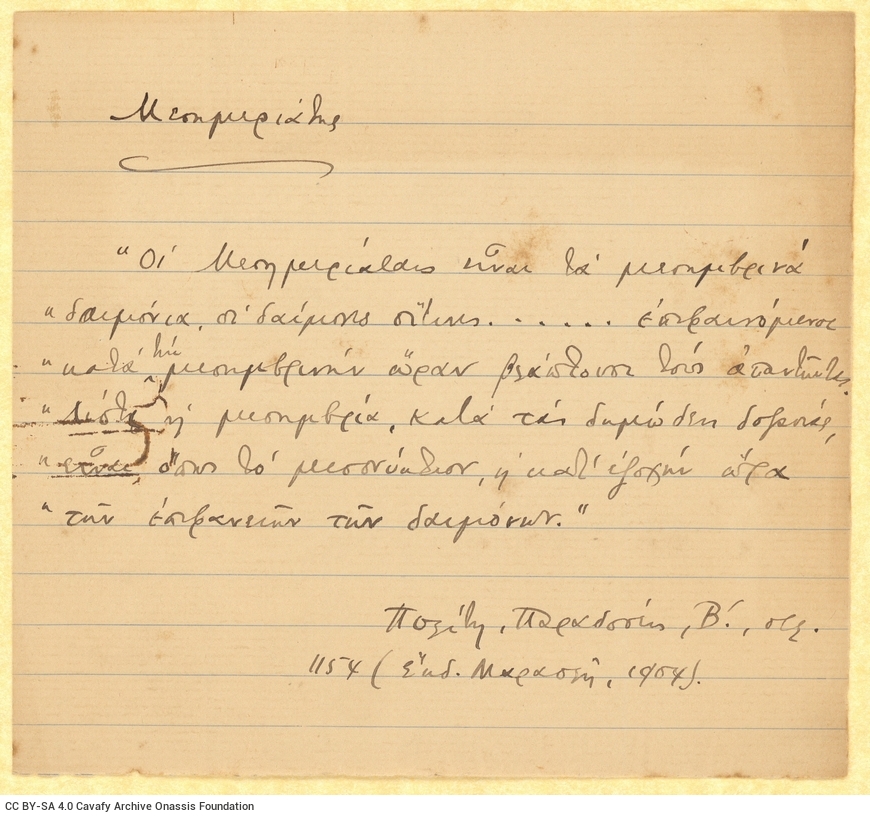 Μεσημεριάτης
"Οἱ Μεσημεριάταις εἶναι τὰ μεσημβρινὰ
"δαιμόνια, οἱ δαίμονες οἵτινες. . . . . . ἐπιφαινόμενοι
"κατὰ τὴν μεσημβρινὴν ὥραν βλάπτουσι τοὺς ἀπαντῶντας.
"Διότι ἡ μεσημβρία, κατὰ τὰς δημώδεις δοξασίας,
"εἶναι, ὅπως τὸ μεσονύκτιον, ἡ κατ' ἐξοχὴν ὥρα
"τῶν ἐπιφανειῶν τῶν δαιμόνων."
Πολίτη, Παραδόσεις, Β΄., σελ.
1154 (ἔκδ. Μαρασλῆ, 1904).
CC BY-SA 4.0 Cavafy Archive Onassis Foundation